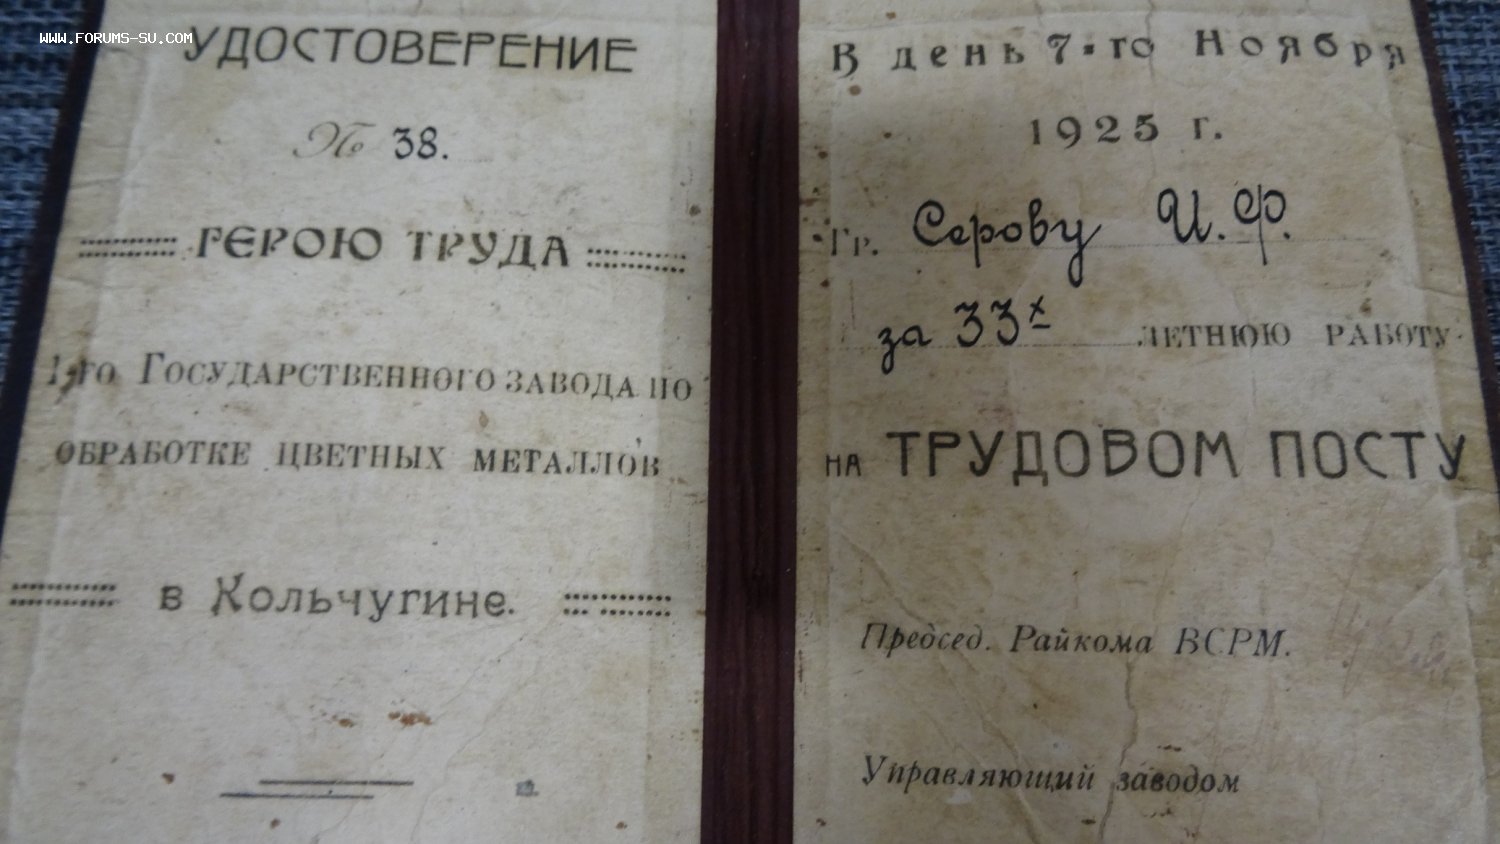 WWW.FORUMS-SU.COM
УДОСТОВЕРЕНИЕ
№ 38.
ГЕРОЮ ТРУДА
1-го ГОСУДАРСТВЕННОГО ЗАВОДА ПО
ОБРАБОТКЕ ЦВЕТНЫХ МЕТАЛЛОВ
в Кольчугине.
В день 7-го Ноября
1925 г.
Гр. Серову И. Ф.
за 33х ЛЕТНЮЮ РАБОТУ
НА ТРУДОВОМ ПОСТУ
Председ. Райкома ВСРМ.
Управляющий заводом